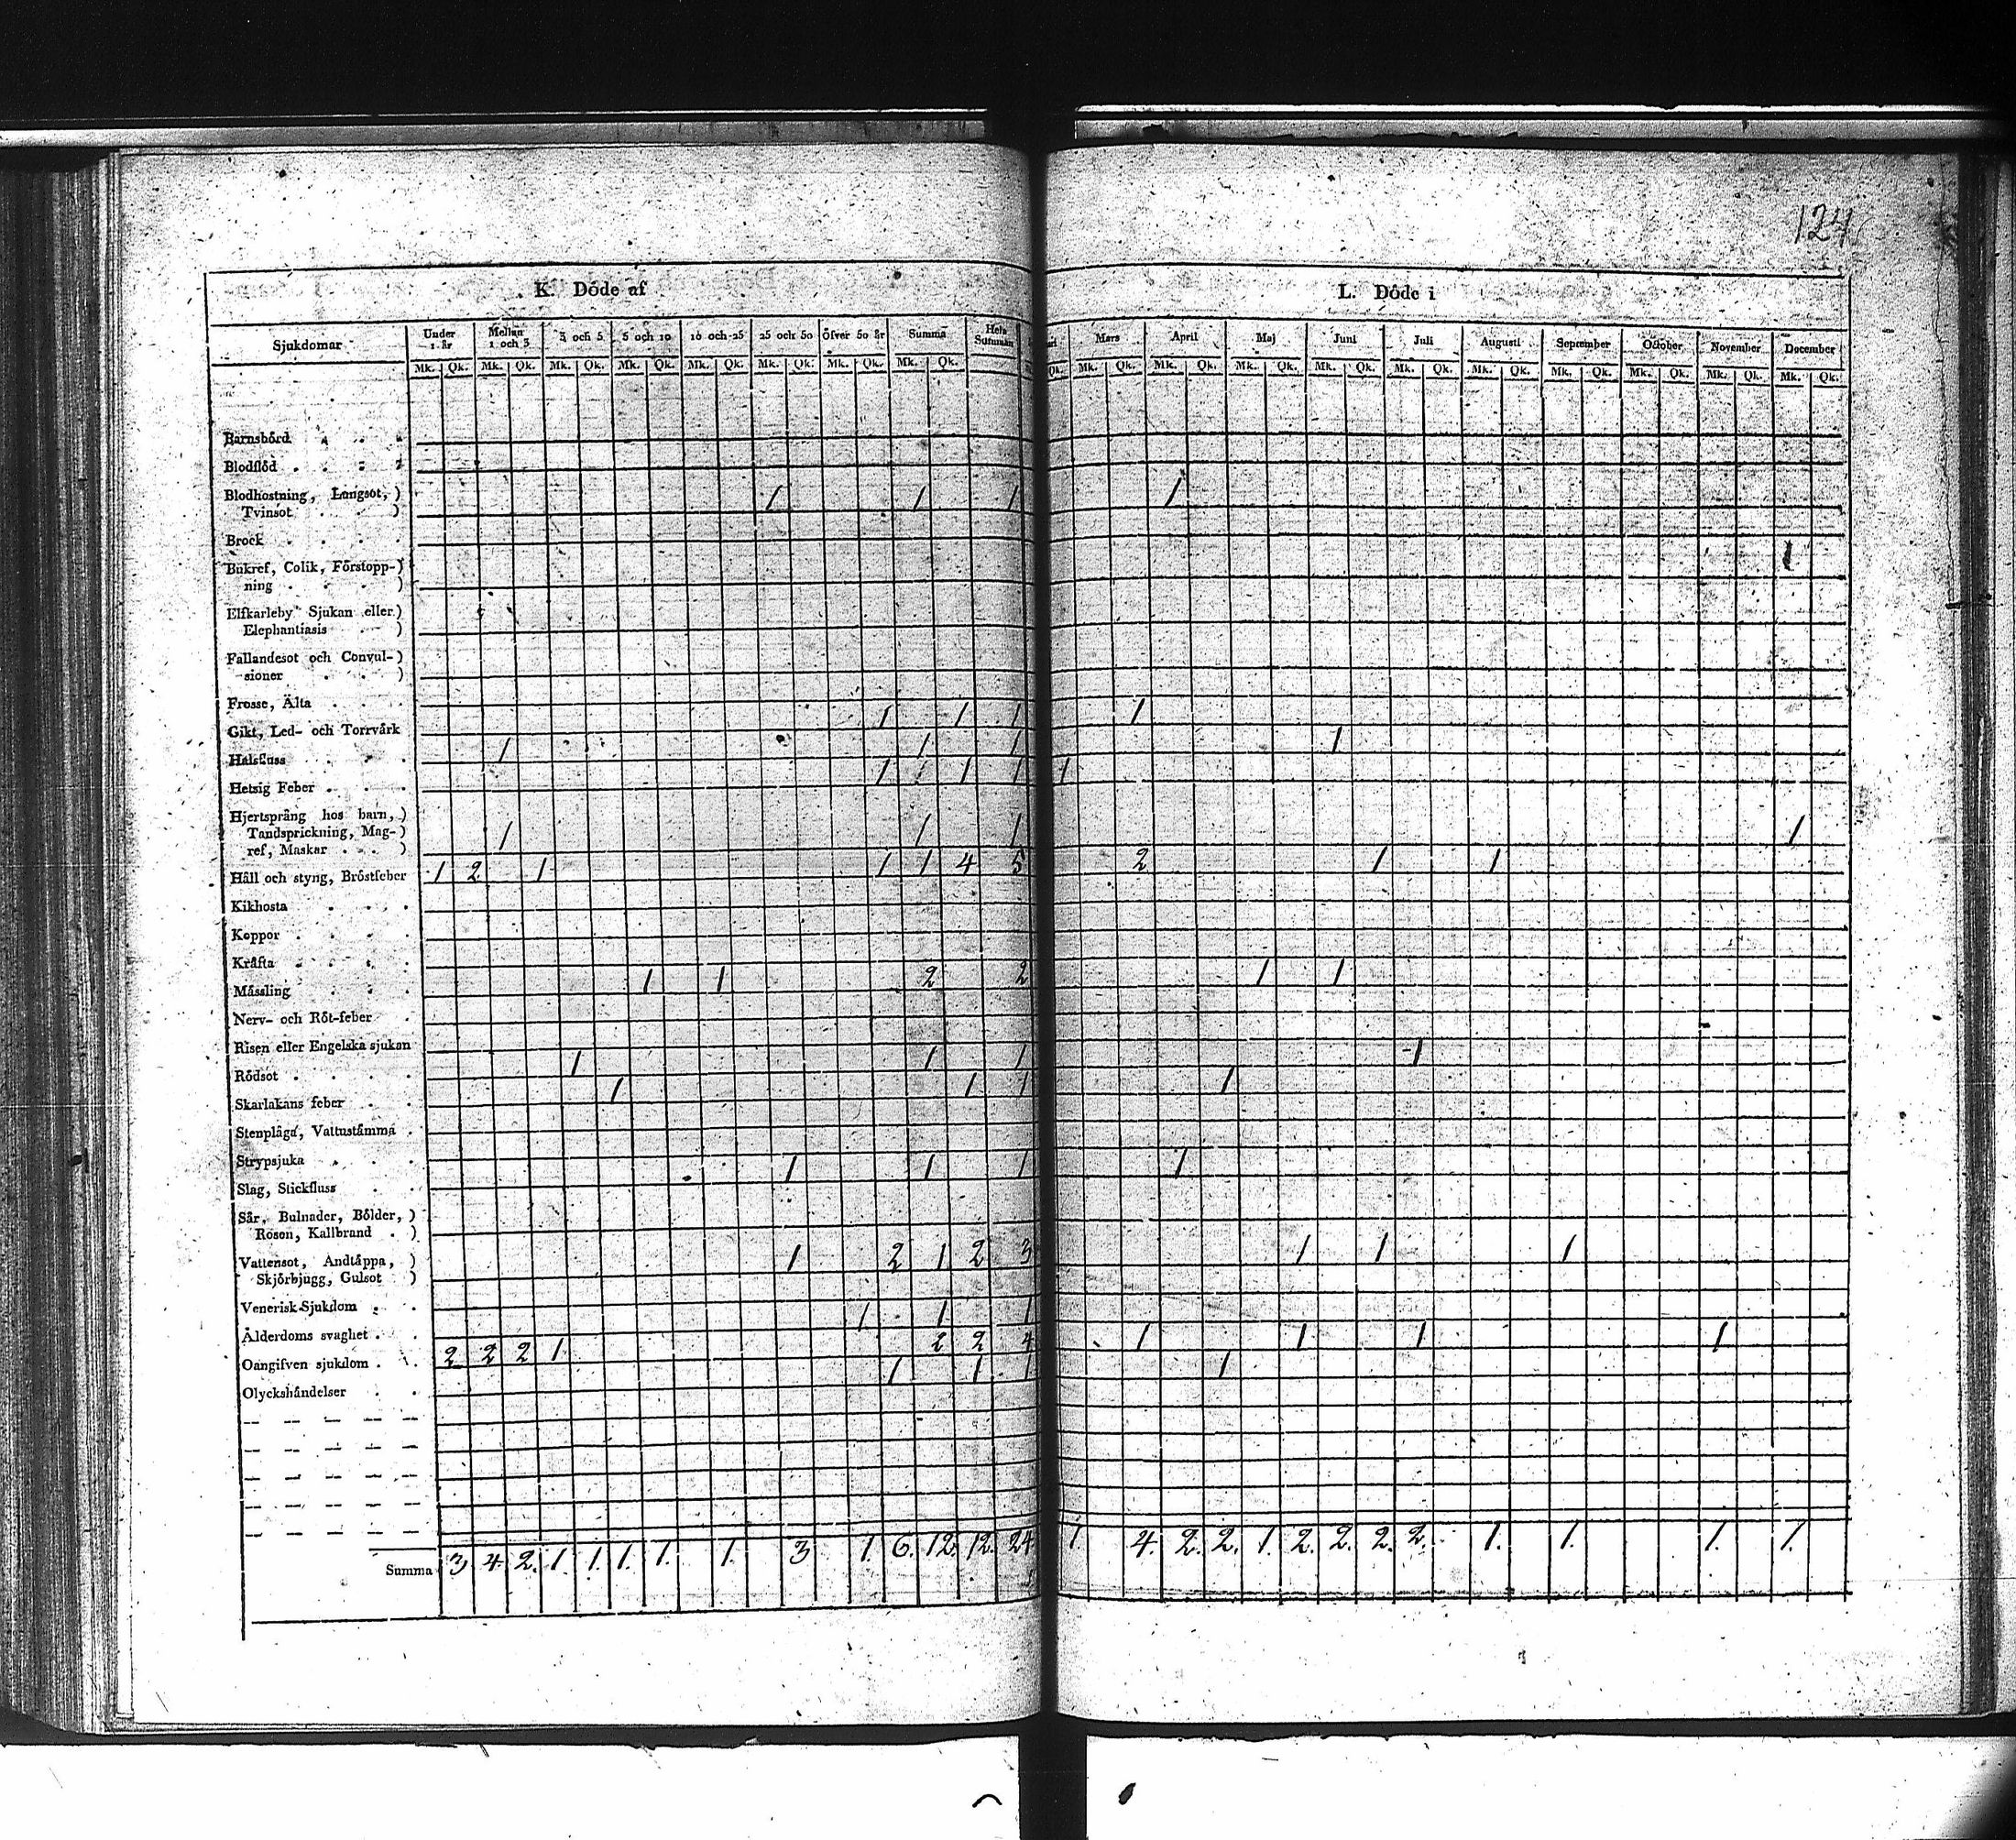 124
K. Döde af
L. Döde i
Sjukdomar Under 1. år Mellan 1 och 3 3 och 5 5 och 10 10 och 25 25 och 50 Öfver 50 år Summa Hela Summan
Mars April Maj Juni Juli Augusti September October November December
Mk. Qk. Mk. Qk. Mk. Qk. Mk. Qk. Mk. Qk. Mk. Qk. Mk. Qk. Mk. Qk.
Qk. Mk. Qk. Mk. Qk. Mk. Qk. Mk. Qk. Mk. Qk. Mk. Qk. Mk. Qk. Mk. Qk. Mk. Qk. Mk. Qk.
Barnsbörd
Blodflöd
Blodhostning, Lungsot,)
Tvinsot ) 1 1 1 1
Brock
1
Bukref, Colik, Förstopp-)
ning )
Elfkarleby Sjukan eller)
Elephantiasis )
Fallandesot och Convul-)
sioner )
Frosse, Älta
1 1 1 1
Gikt, Led- och Torrvärk
1 1 1 1
Halsfluss
1 1 1 1 1
Hetsig Feber
Hjertsprång hos barn,)
Tandsprickning, Mag-) 1 1 1 1
ref, Maskar )
Håll och styng, Bröstfeber 1 2 1 1 1 4 5 2 1 1
Kikhosta
Koppor
Kräfta
Mässling 1 1 2 2 1 1
Nerv- och Röt-feber
Risen eller Engelska sjukan
1 1 1 1
Rödsot
1 1 1 1
Skarlakans feber
Stenplåga, Vattustämma
Strypsjuka
1 1 1 1
Slag, Stickfluss
Sår, Bulnader, Bölder, )
Rosen, Kallbrand )
Vattensot, Andtäppa, ) 1 2 1 2 3 1 1 1
Skjörbjugg, Gulsot )
Venerisk Sjukdom
1 1 1
Ålderdoms svaghet
2 2 2 1 2 2 4 1 1 1 1
Oangifven sjukdom
1 1 1 1
Olyckshändelser
Summa 3 4. 2. 1. 1. 1. 1. 1. 3 1. 6. 12. 12. 24 1. 4. 2. 2. 1. 2. 2. 2. 2. 1. 1. 1. 1.